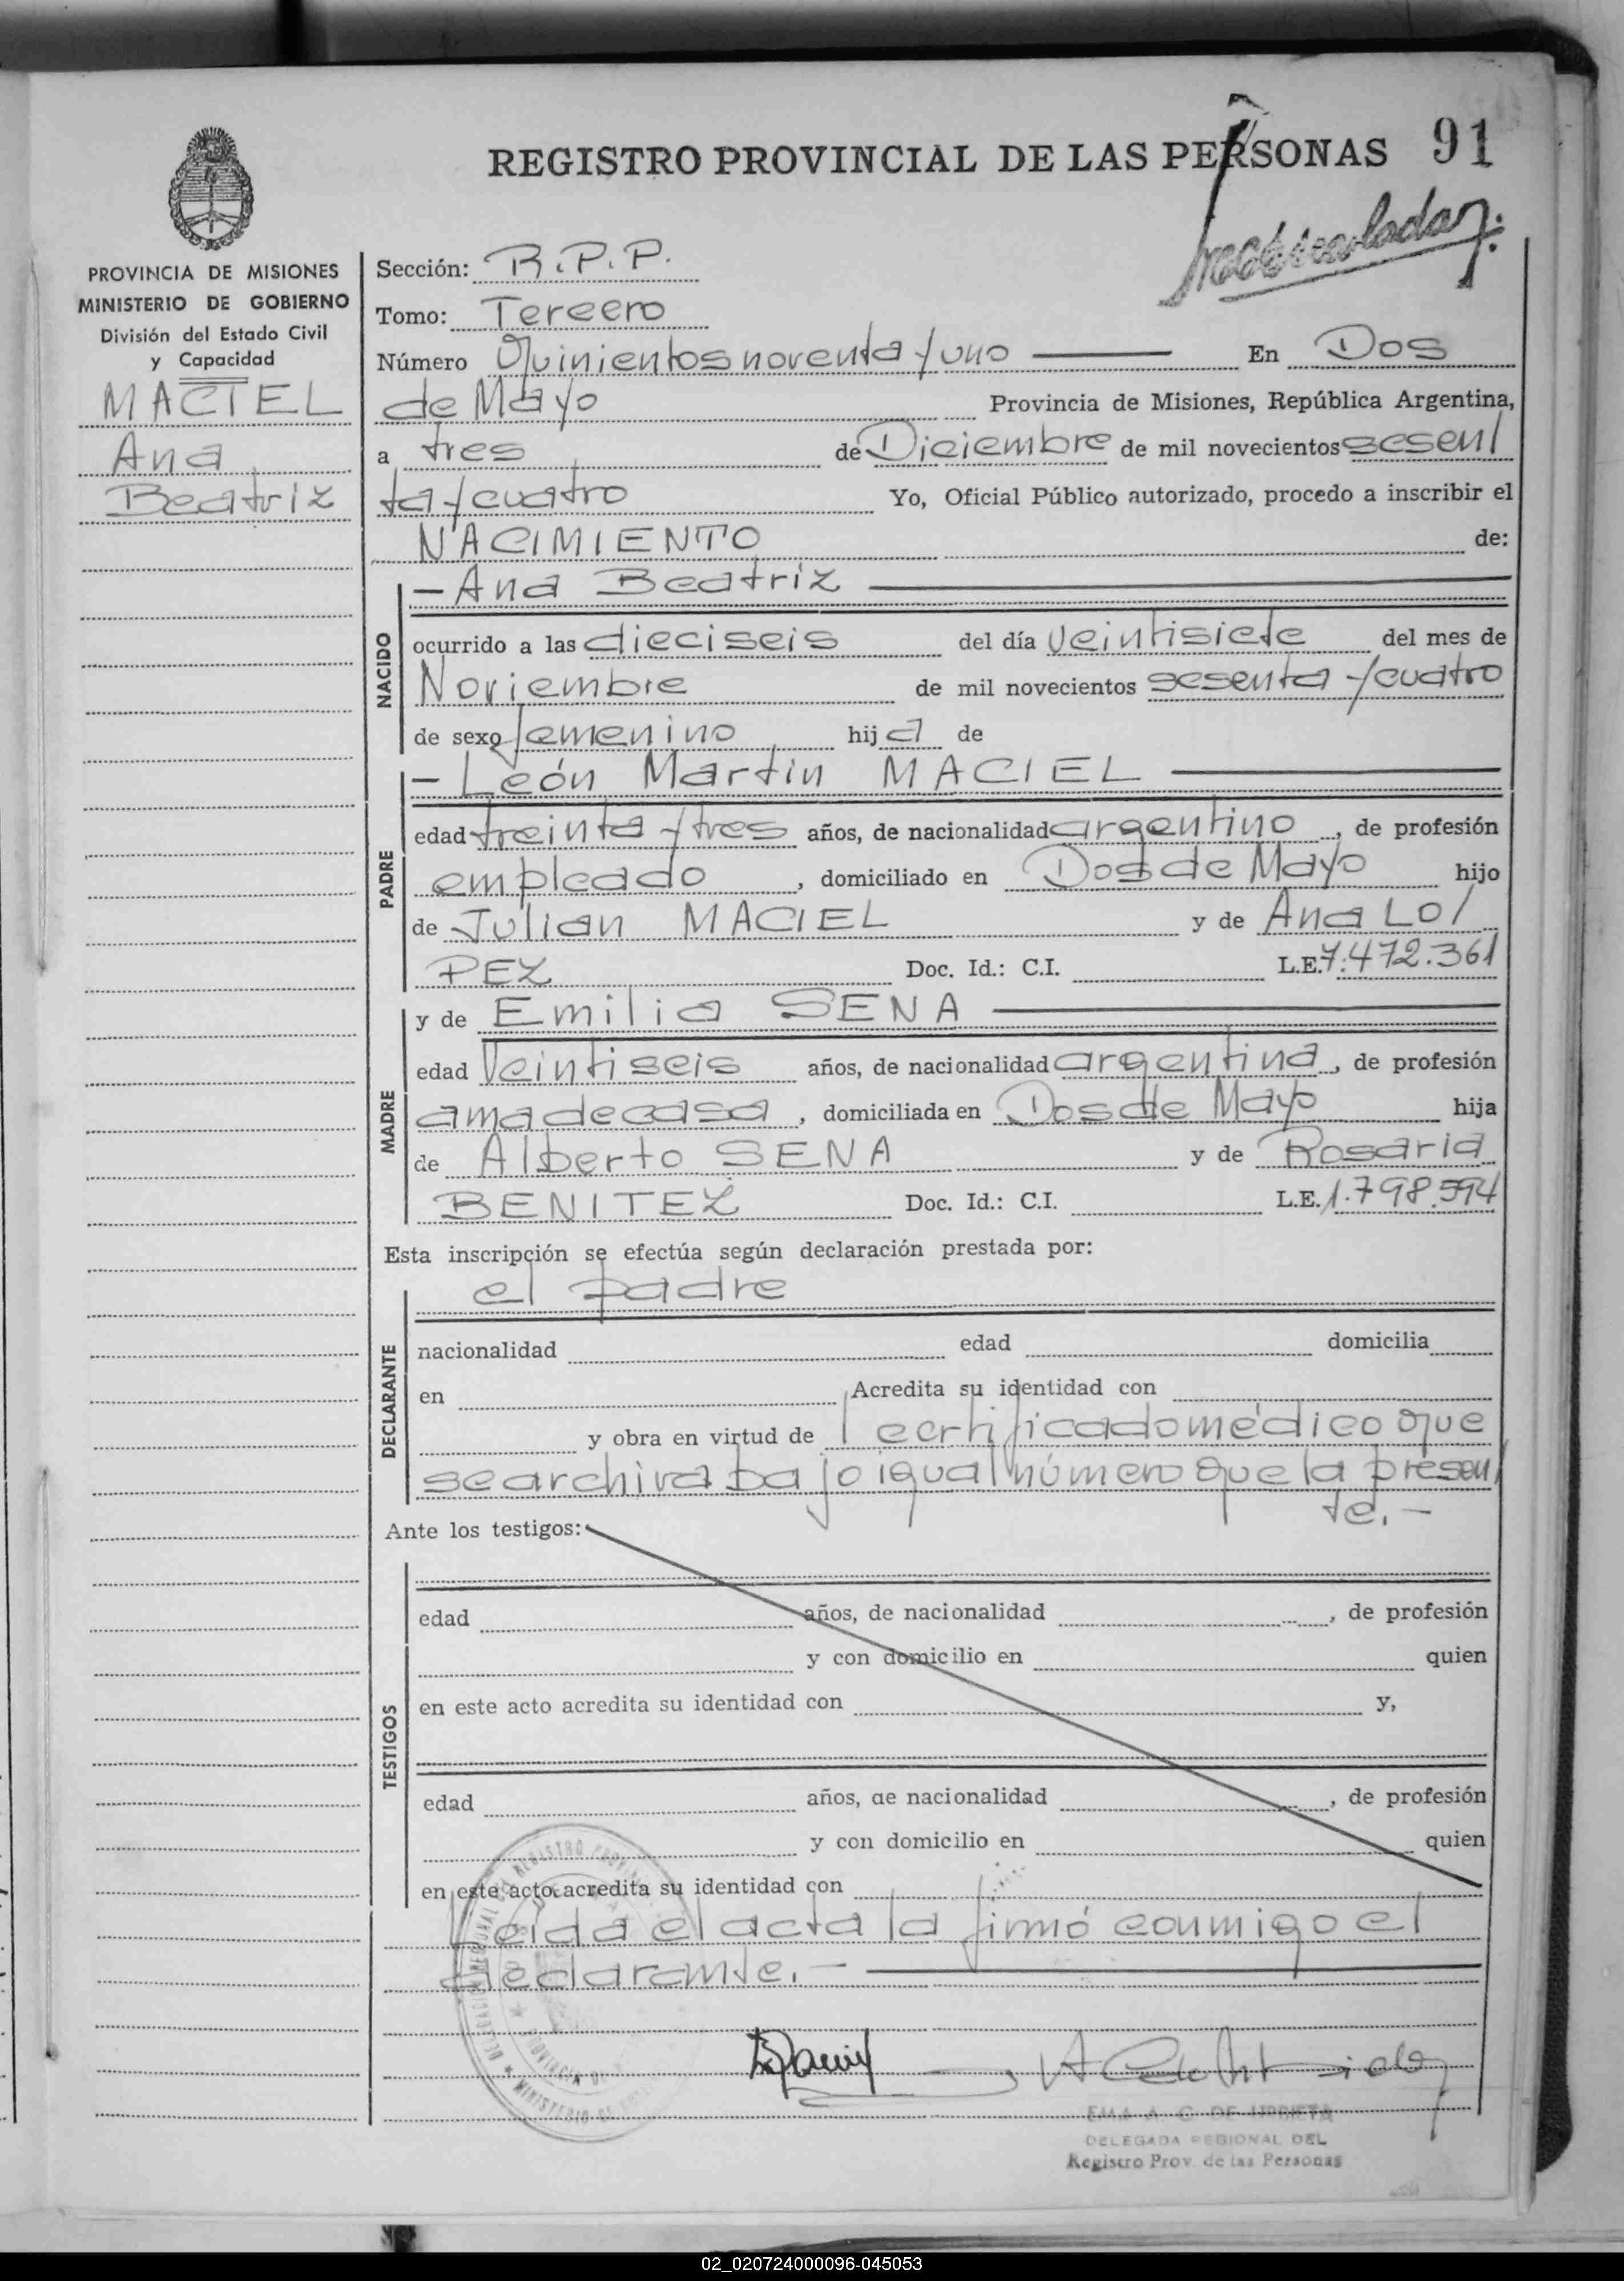 REGISTRO PROVINCIAL DE LAS PERSONAS 91
PROVINCIA DE MISIONES
MINISTERIO DE GOBIERNO
División del Estado Civil
y Capacidad
MACIEL
Ana
Beatriz
Sección: R.P.P.
Tomo: Tercero
Número Quinientos noventa y uno En Dos
de Mayo Provincia de Misiones, República Argentina,
a tres de Diciembre de mil novecientos sesen/
ta y cuatro Yo, Oficial Público autorizado, procedo a inscribir el
NACIMIENTO de:
NACIDO
- Ana Beatriz
ocurrido a las dieciseis del día veintisiete del mes de
Noviembre de mil novecientos sesenta y cuatro
de sexo femenino hija de
PADRE
- León Martin MACIEL
edad treinta y tres años, de nacionalidad argentino, de profesión
empleado, domiciliado en Dos de Mayo hijo
de Julian MACIEL y de Ana LO/
PEZ Doc. Id.: C.I. L.E. 7.472.361
MADRE
y de Emilia SENA
edad veintiseis años, de nacionalidad argentina, de profesión
ama de casa, domiciliada en Dos de Mayo hija
de Alberto SENA y de Rosaria
BENITEZ Doc. Id.: C.I. L.E. 1.798.594
Esta inscripción se efectúa según declaración prestada por:
DECLARANTE
el padre
nacionalidad edad domicilia
en Acredita su identidad con
y obra en virtud de certificado médico que
se archiva bajo igual número que la presen/
te.-
Ante los testigos:
TESTIGOS
edad años, de nacionalidad , de profesión
y con domicilio en quien
en este acto acredita su identidad con y,
edad años, de nacionalidad , de profesión
y con domicilio en quien
en este acto acredita su identidad con
Leida el acta la firmó conmigo el
declarante.-
EMA A. C. DE URBIETA
DELEGADA REGIONAL DEL
Registro Prov. de las Personas
02_020724000096-045053